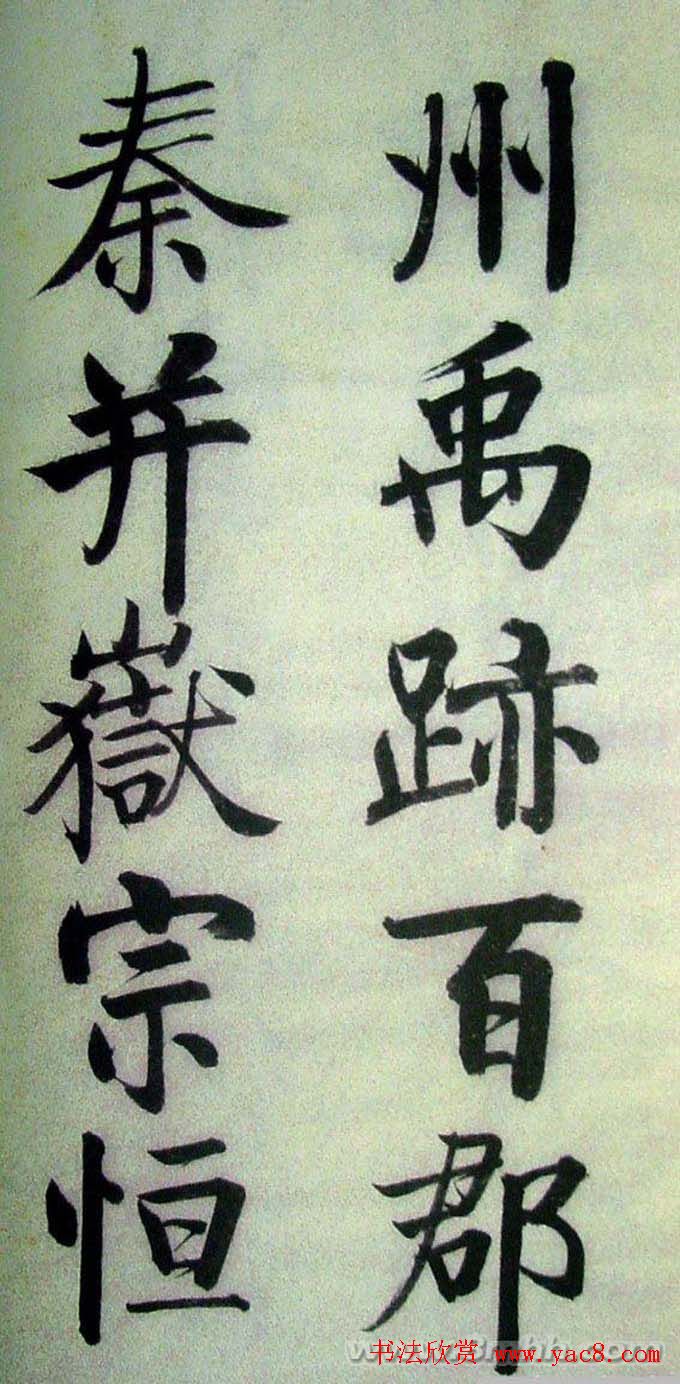 州禹跡百郡
秦并嶽宗恒
书法欣赏 www.yac8.com